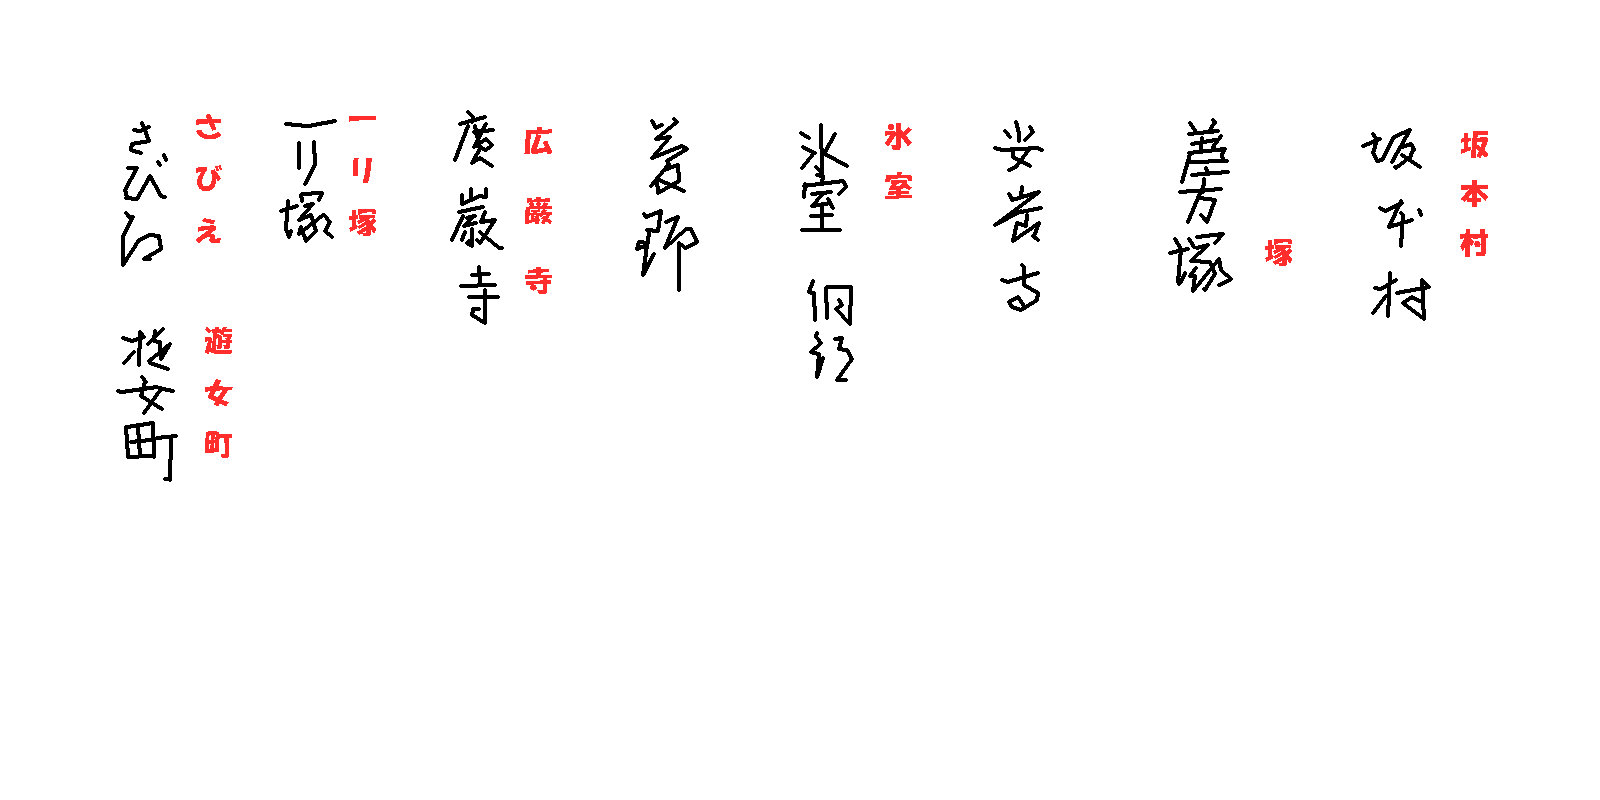 坂本村
坂本村
塚
塚
安岩寺
氷室
氷室
菱野
広巌寺
廣巌寺
一リ塚
一リ塚
さびえ
さびえ
遊女町
遊女町